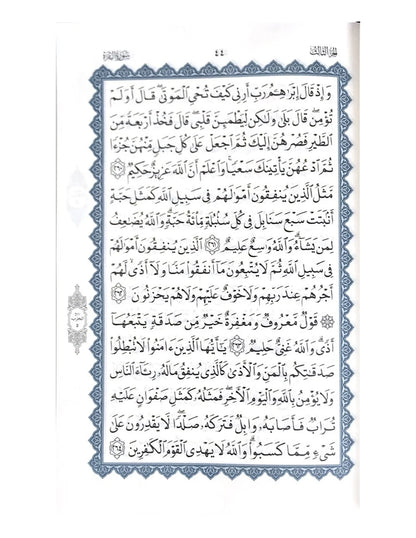 الجزء الثالث ٤٤ سورة البقرة
وَإِذْ قَالَ إِبْرَاهِـۧمُ رَبِّ أَرِنِي كَيْفَ تُحْيِ الْمَوْتَىٰ ۖ قَالَ أَوَلَمْ
تُؤْمِن ۖ قَالَ بَلَىٰ وَلَٰكِن لِّيَطْمَئِنَّ قَلْبِي ۖ قَالَ فَخُذْ أَرْبَعَةً مِّنَ
الطَّيْرِ فَصُرْهُنَّ إِلَيْكَ ثُمَّ اجْعَلْ عَلَىٰ كُلِّ جَبَلٍ مِّنْهُنَّ جُزْءًا
ثُمَّ ادْعُهُنَّ يَأْتِينَكَ سَعْيًا ۚ وَاعْلَمْ أَنَّ اللَّهَ عَزِيزٌ حَكِيمٌ ﴿٢٦٠﴾
مَّثَلُ الَّذِينَ يُنفِقُونَ أَمْوَالَهُمْ فِي سَبِيلِ اللَّهِ كَمَثَلِ حَبَّةٍ
أَنبَتَتْ سَبْعَ سَنَابِلَ فِي كُلِّ سُنبُلَةٍ مِّائَةُ حَبَّةٍ ۗ وَاللَّهُ يُضَاعِفُ
لِمَن يَشَاءُ ۗ وَاللَّهُ وَاسِعٌ عَلِيمٌ ﴿٢٦١﴾ الَّذِينَ يُنفِقُونَ أَمْوَالَهُمْ
فِي سَبِيلِ اللَّهِ ثُمَّ لَا يُتْبِعُونَ مَا أَنفَقُوا مَنًّا وَلَا أَذًى ۙ لَّهُمْ
أَجْرُهُمْ عِندَ رَبِّهِمْ وَلَا خَوْفٌ عَلَيْهِمْ وَلَا هُمْ يَحْزَنُونَ ﴿٢٦٢﴾
۞ قَوْلٌ مَّعْرُوفٌ وَمَغْفِرَةٌ خَيْرٌ مِّن صَدَقَةٍ يَتْبَعُهَا
أَذًى ۗ وَاللَّهُ غَنِيٌّ حَلِيمٌ ﴿٢٦٣﴾ يَا أَيُّهَا الَّذِينَ آمَنُوا لَا تُبْطِلُوا
صَدَقَاتِكُم بِالْمَنِّ وَالْأَذَىٰ كَالَّذِي يُنفِقُ مَالَهُ رِئَاءَ النَّاسِ
وَلَا يُؤْمِنُ بِاللَّهِ وَالْيَوْمِ الْآخِرِ ۖ فَمَثَلُهُ كَمَثَلِ صَفْوَانٍ عَلَيْهِ
تُرَابٌ فَأَصَابَهُ وَابِلٌ فَتَرَكَهُ صَلْدًا ۖ لَّا يَقْدِرُونَ عَلَىٰ
شَيْءٍ مِّمَّا كَسَبُوا ۗ وَاللَّهُ لَا يَهْدِي الْقَوْمَ الْكَافِرِينَ ﴿٢٦٤﴾